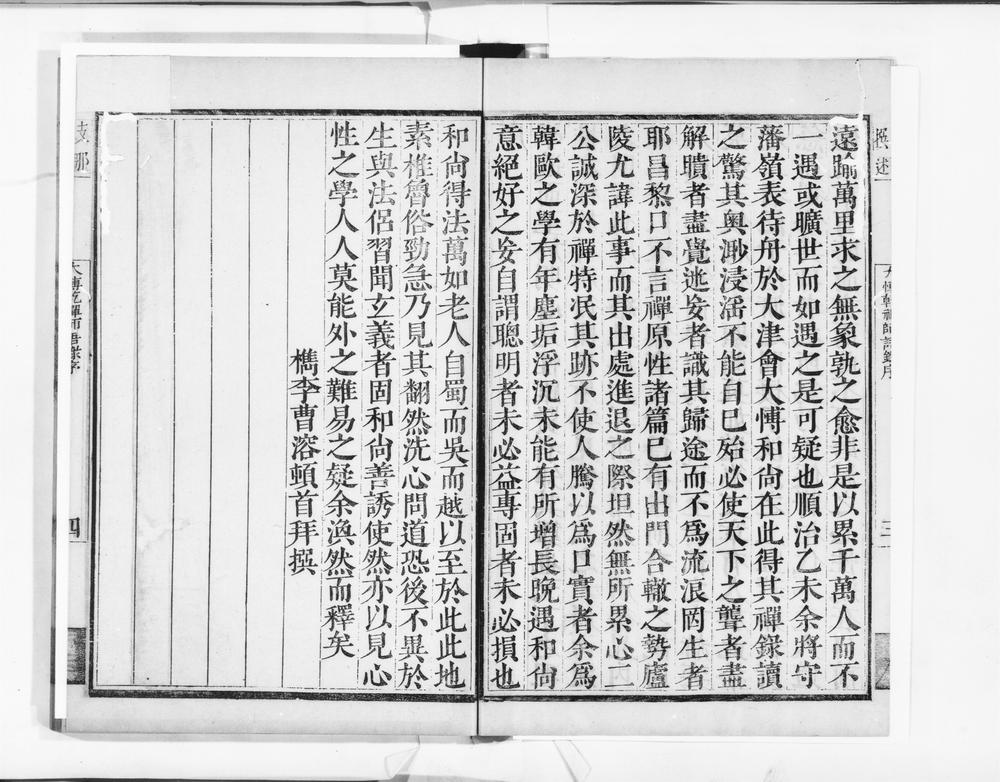 遠踰萬里求之無象孰之愈非是以累千萬人而不
一遇或曠世而如遇之是可疑也順治乙未余將守
藩嶺表待舟於大津會大博和尚在此得其禪錄讀
之驚其奧渺浸滛不能自已殆必使天下之聾者盡
解瞶者盡覺迯妄者識其歸途而不爲流浪罔生者
耶昌黎口不言禪原性諸篇已有出門合轍之勢廬
陵尤諱此事而其出處進退之際坦然無所累心二
公誠深於禪特冺其跡不使人騰以爲口實者余爲
韓歐之學有年塵垢浮沉未能有所增長晚遇和尚
意絕好之妄自謂聰明者未必益專固者未必損也
和尚得法萬如老人自蜀而吳而越以至於此此地
素椎魯俗勁急乃見其翻然洗心問道恐後不異於
生與法侶習聞玄義者固和尚善誘使然亦以見心
性之學人人莫能外之難易之疑余渙然而釋矣
檇李曹溶頓首拜撰
四